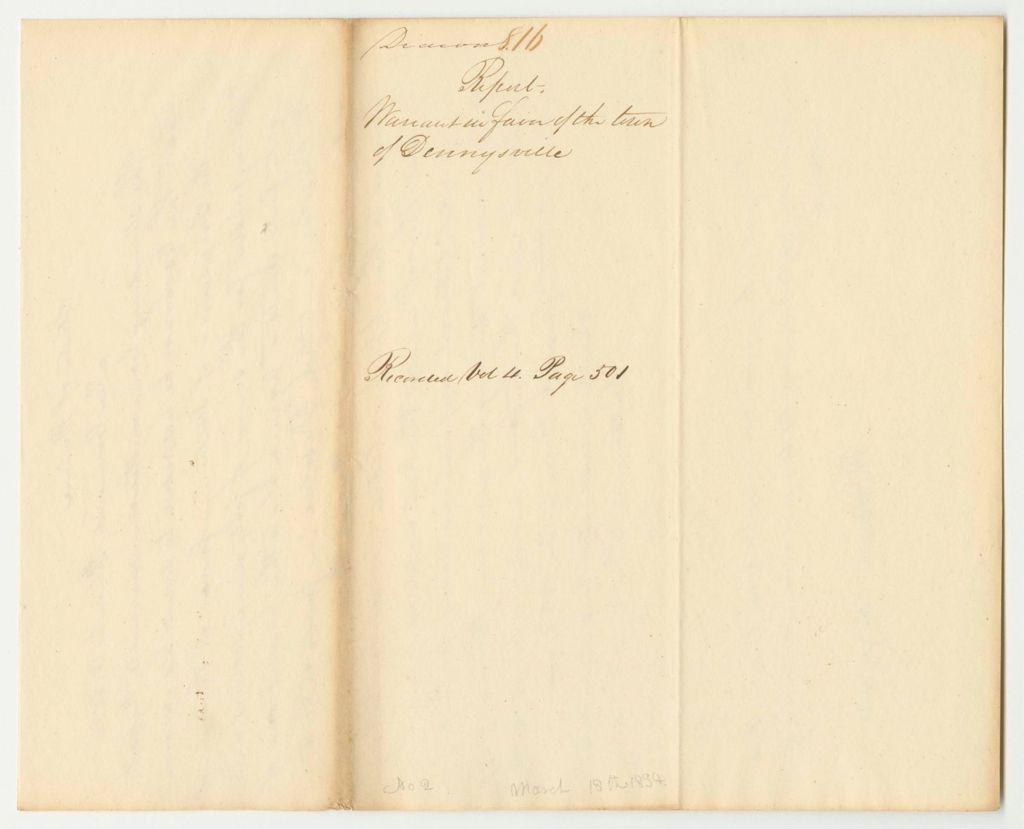 816
Report.
Warrant in favor of the town
of Dennysville
Recorded Vol 4. Page 501
No 2 March 18th 1834